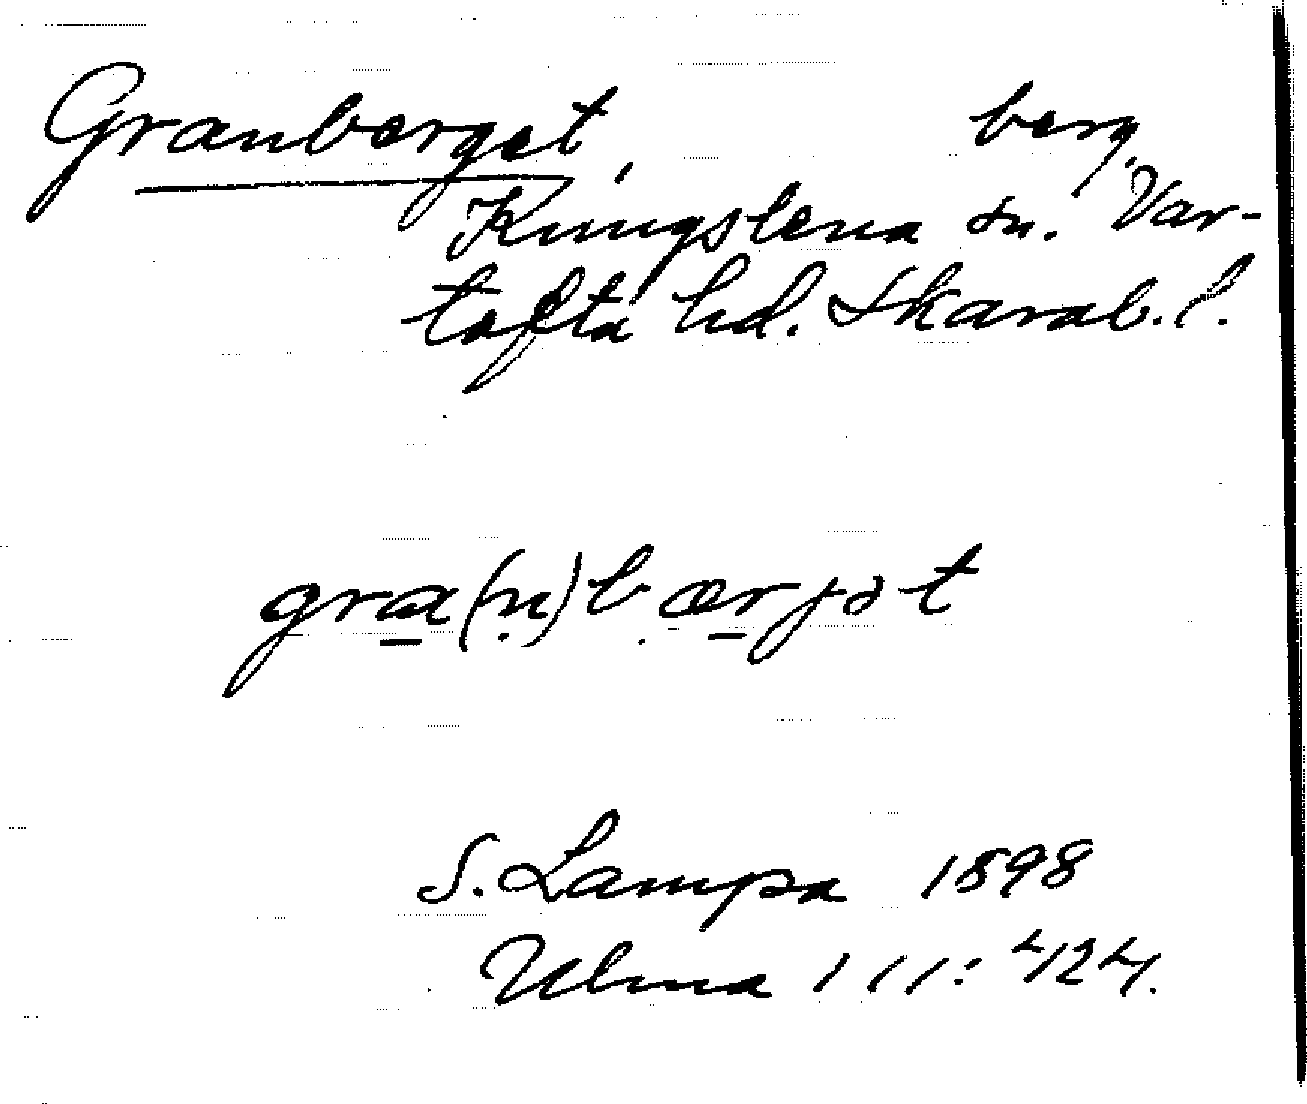 Granberget, berg,
Kungslena sn. Var-
tofta hd. Skarab. l.
gra(n)bærjət
S. Lampa 1898
Ulma 111:424.